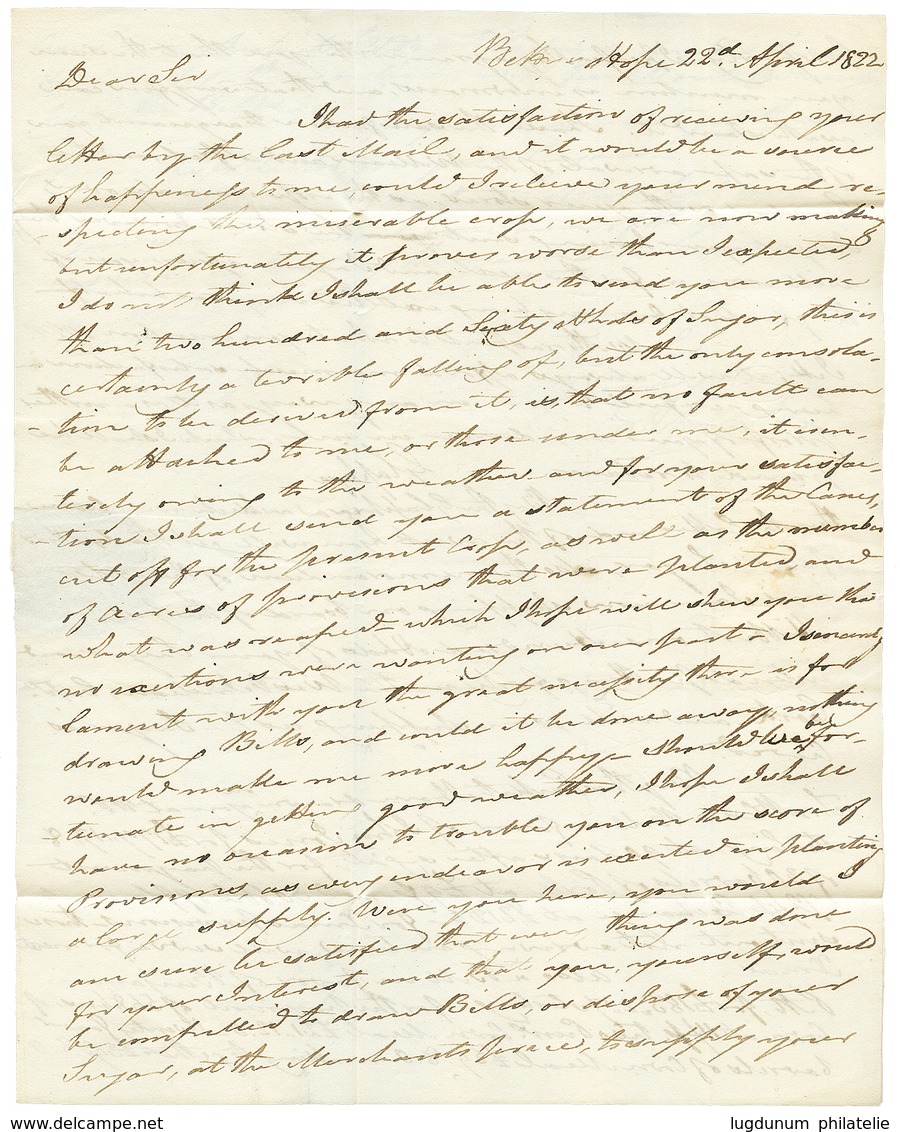 Hope 22d. April 1822
Dear Sir
I had the satisfaction of receiving your
letter by the last Mail, and it would be a source
of happiness to me, could I relieve your mind re-
-specting the miserable crop, we are now making
but unfortunately it proves worse than I expected,
I do not think I shall be able to send you more
than two hundred and Sixty Hhds of Sugar, this is
certainly a terrible falling of, but the only consola-
-tion to be derived from it, is, that no fault can
be attached to me, or those under me, it is en-
tirely owing to the weather and for your satisfac-
-tion I shall send you a statement of the Canes,
cut off for the present Crop, as well as the number
of Acres of provisions that were planted and
what was reaped which I hope will shew you that
no exertions were wanting on our part - I sincerely
lament with you the great necessity there is for
drawing Bills, and could it be done away, nothing
would make me more happy - should we be for-
tunate in getting good weather, I hope I shall
have no occasion to trouble you on the score of
Provisions, as every endeavor is exerted in planting
a large supply. Were you here, you would I
am sure be satisfied that every thing was done
for your Interest, and that you, yourself, would
be compelled to draw Bills, or dispose of your
Sugar, at the Merchants price, to supply your
www.delcampe.net
lugdunum philatelie